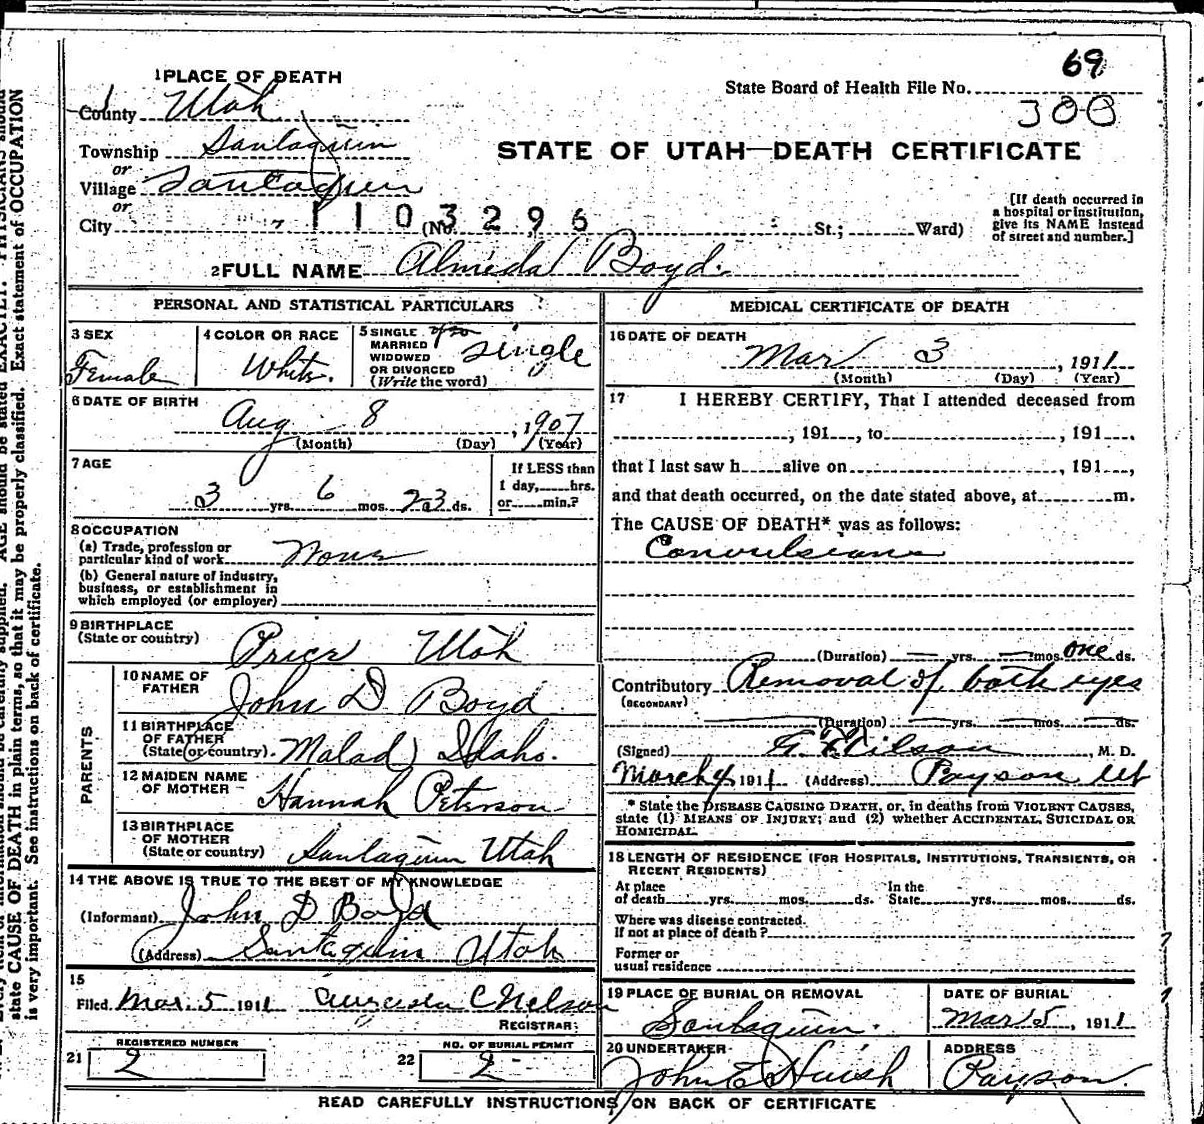 69
State Board of Health File No.
300
1 PLACE OF DEATH
County Utah
Township Santaquin
or
Village Santaquin
or
City
1103296
(No. St.; Ward)
[If death occurred in a hospital or institution, give its NAME instead of street and number.]
STATE OF UTAH—DEATH CERTIFICATE
2 FULL NAME Almeda Boyd.
PERSONAL AND STATISTICAL PARTICULARS
3 SEX
Female
4 COLOR OR RACE
White.
5 SINGLE
MARRIED
WIDOWED
OR DIVORCED
(Write the word)
single
6 DATE OF BIRTH
Aug 8, 1907
(Month) (Day) (Year)
7 AGE
3 yrs. 6 mos. 23 ds.
If LESS than
1 day, hrs.
or min.?
8 OCCUPATION
(a) Trade, profession or
particular kind of work None
(b) General nature of industry,
business, or establishment in
which employed (or employer)
9 BIRTHPLACE
(State or country)
Price Utah
PARENTS
10 NAME OF
FATHER
John D Boyd
11 BIRTHPLACE
OF FATHER
(State or country). Malad Idaho.
12 MAIDEN NAME
OF MOTHER
Hannah Peterson
13 BIRTHPLACE
OF MOTHER
(State or country)
Santaquin Utah
14 THE ABOVE IS TRUE TO THE BEST OF MY KNOWLEDGE
(Informant) John D Boyd
(Address) Santaquin Utah
15
Filed Mar. 5 1911 Augusta C Nelson
REGISTRAR
REGISTERED NUMBER
21 2
NO. OF BURIAL PERMIT
22 2
MEDICAL CERTIFICATE OF DEATH
16 DATE OF DEATH
Mar 3, 1911
(Month) (Day) (Year)
17 I HEREBY CERTIFY, That I attended deceased from
, 191 , to , 191 .
that I last saw h alive on , 191 ,
and that death occurred, on the date stated above, at m.
The CAUSE OF DEATH* was as follows:
Convulsions
(Duration) yrs. mos. one ds.
Contributory Removal of both eyes
(SECONDARY)
(Duration) yrs. mos. ds.
(Signed) Wilson M. D.
March 4 1911 (Address) Payson Ut
* State the DISEASE CAUSING DEATH, or, in deaths from VIOLENT CAUSES,
state (1) MEANS OF INJURY; and (2) whether ACCIDENTAL, SUICIDAL OR
HOMICIDAL.
18 LENGTH OF RESIDENCE (FOR HOSPITALS, INSTITUTIONS, TRANSIENTS, OR
RECENT RESIDENTS)
At place
of death yrs. mos. ds.
In the
State yrs. mos. ds.
Where was disease contracted.
If not at place of death?
Former or
usual residence
19 PLACE OF BURIAL OR REMOVAL
Santaquin.
DATE OF BURIAL
Mar 5, 1911
20 UNDERTAKER
John E Huish
ADDRESS
Payson.
READ CAREFULLY INSTRUCTIONS ON BACK OF CERTIFICATE
state CAUSE OF DEATH in plain terms, so that it may be properly classified. Exact statement of OCCUPATION
is very important. See instructions on back of certificate.